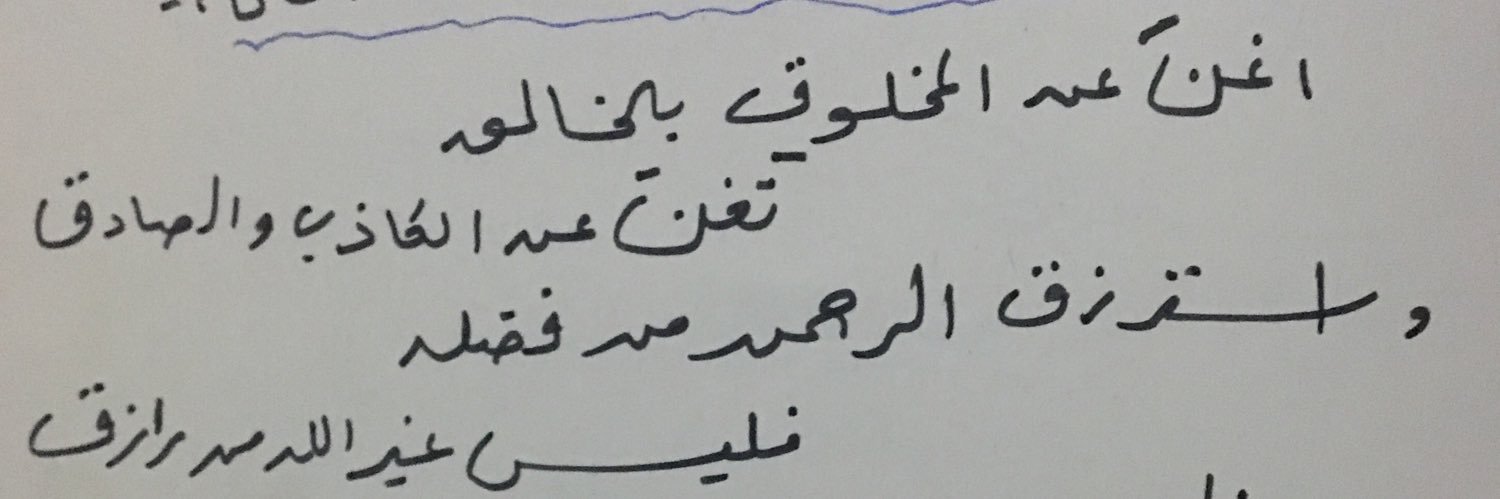 اغنَ عن المخلوق بالخالق
تغنَ عن الكاذب والصادق
واسترزق الرحمن من فضله
فليس غير الله من رازق